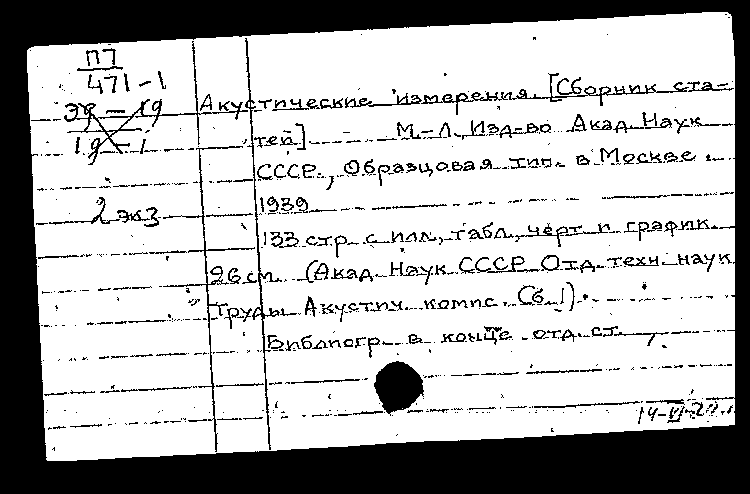 П7
471-1
Акустические измерения. [Сборник ста-
тей] М.-Л. Изд-во Акад. Наук
СССР., Образцовая тип. в Москве.
2 экз
1939
133 стр. с илл., табл., черт и график.
26 см. (Акад. Наук СССР Отд. техн. наук
Труды Акустич. комис. Сб. 1).
Библиогр. в конце отд. ст.